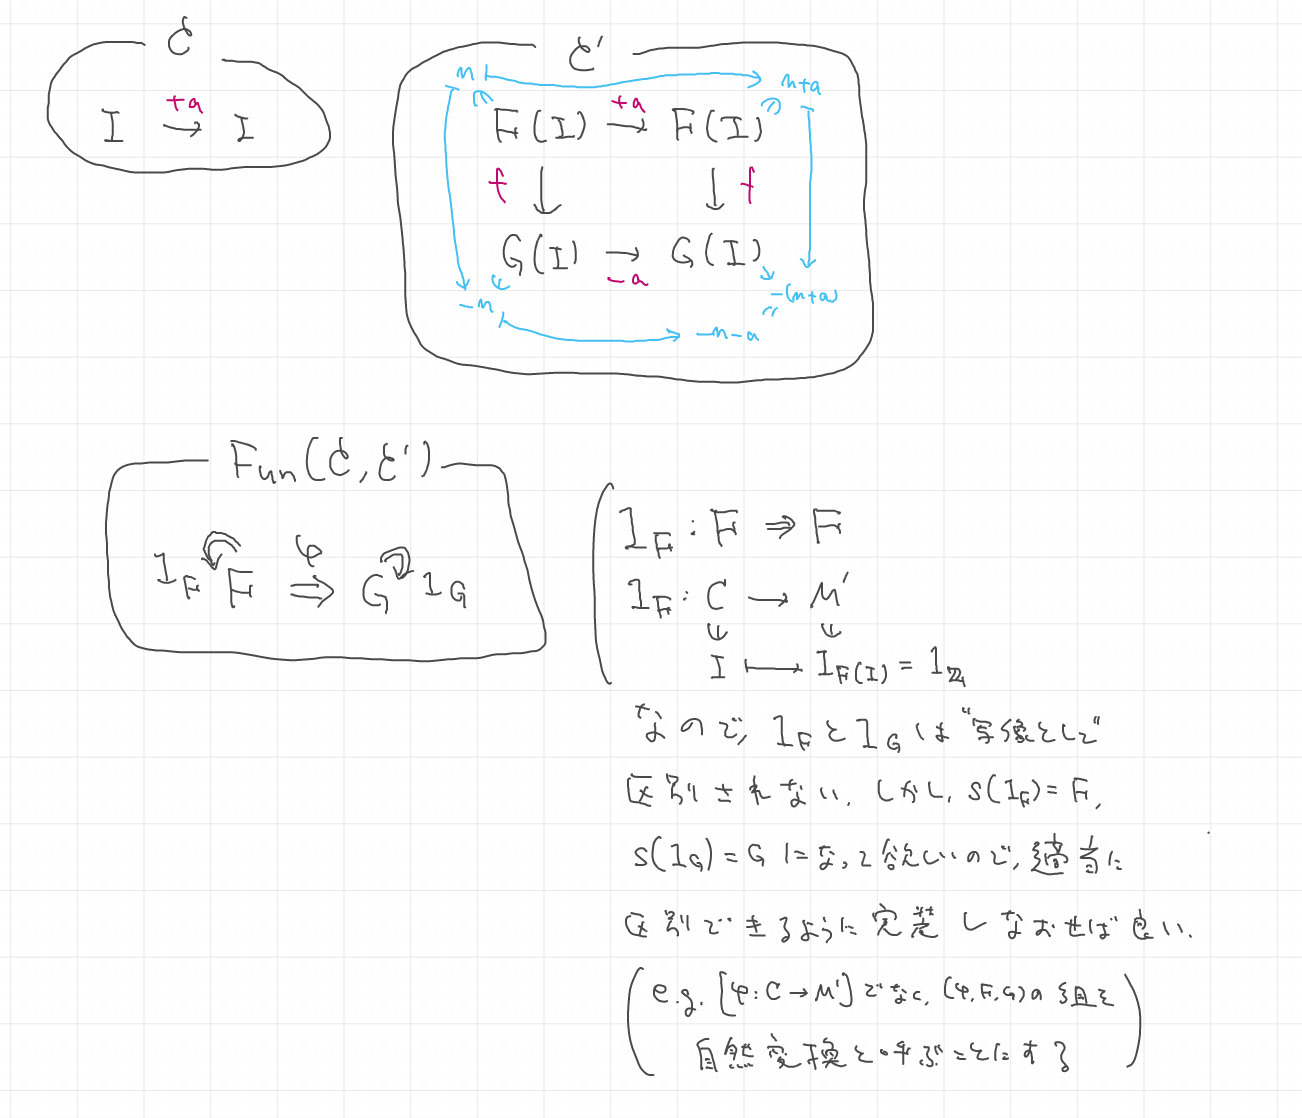 𝒞
I →(+a) I
𝒞'
n ↦ n+a
F(I) →(+a) F(I)
f ↓ ↓ f
G(I) →(-a) G(I)
-n -(n+a)
-n-a
Fun(𝒞, 𝒞')
1_F F ⇒(φ) G 1_G
1_F : F ⇒ F
1_F : C → M'
I ↦ I_F(I) = 1_ℤ
なので, 1_F と 1_G は "写像として"
区別されない. しかし, s(1_F) = F,
s(1_G) = G になって欲しいので, 適当に
区別できるように実装しなおせば良い.
(e.g. [φ: C → M'] でなく, (φ, F, G) の組を
自然変換と呼ぶことにする)